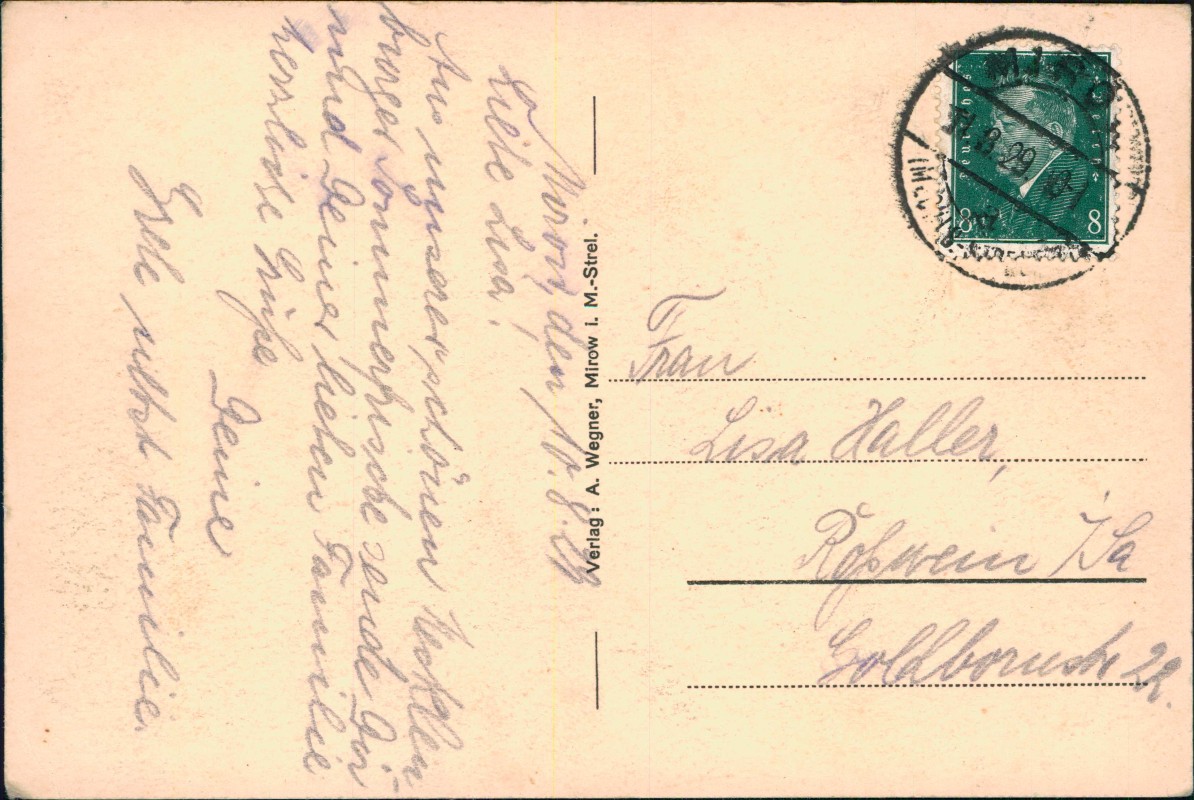 Mirow, den 10.8.29
Liebe Lisa!
Aus unserer schönen Mecklen-
burger Sommerfrische sende Dir
und Deiner lieben Familie
herzliche Grüße
Deine
nebst Familie.
Verlag: A. Wegner, Mirow i. M.-Strel.
MIROW
8.29
Deutsches Reich
8 8
Frau
Lisa Haller,
Roßwein i/Sa
Goldbornstr 22.